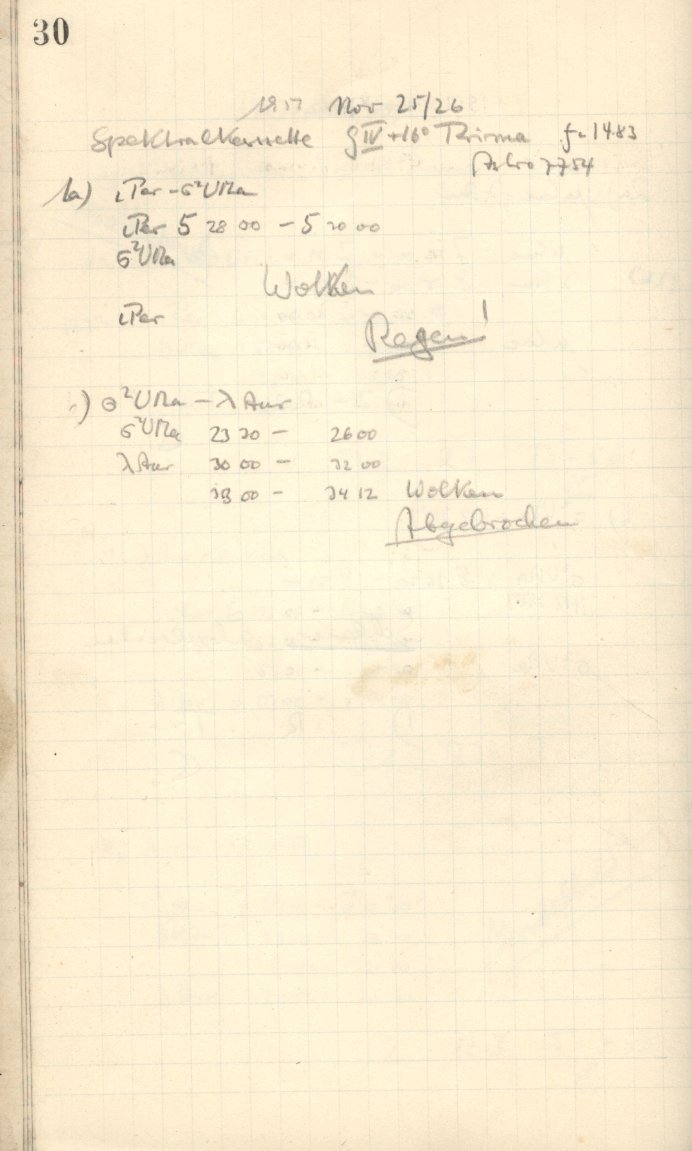 30
1957 Nov 25/26
Spektralkassette gIV +16° Prisma f = 1483
Astro 7754
1a) ιPer - σ²UMa
ιPer 5 28 00 - 5 30 00
σ²UMa
Wolken
ιPer
Regen!
) σ²UMa - λ Aur
σ²UMa 23 30 - 26 00
λ Aur 30 00 - 32 00
33 00 - 34 12 Wolken
Abgebrochen